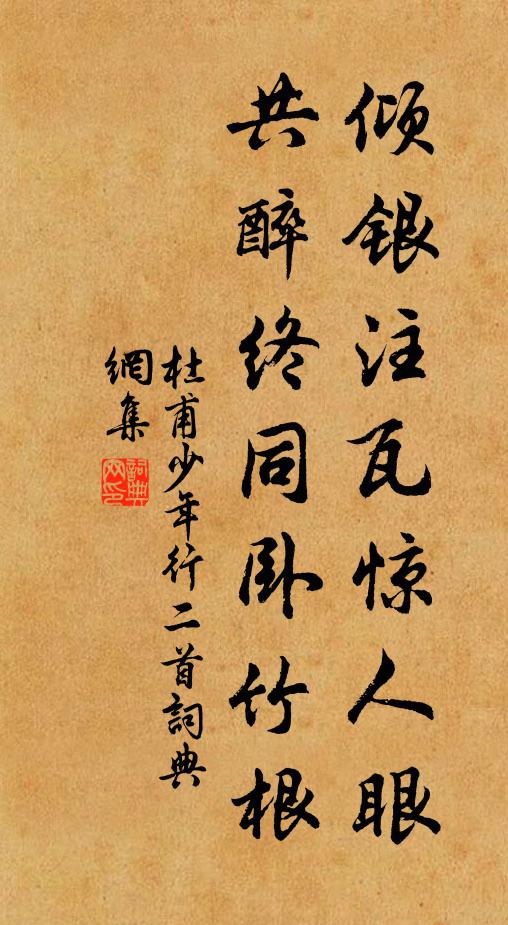 倾银注瓦惊人眼
共醉终同卧竹根
杜甫少年行二首詞典
網集
詞典
网印